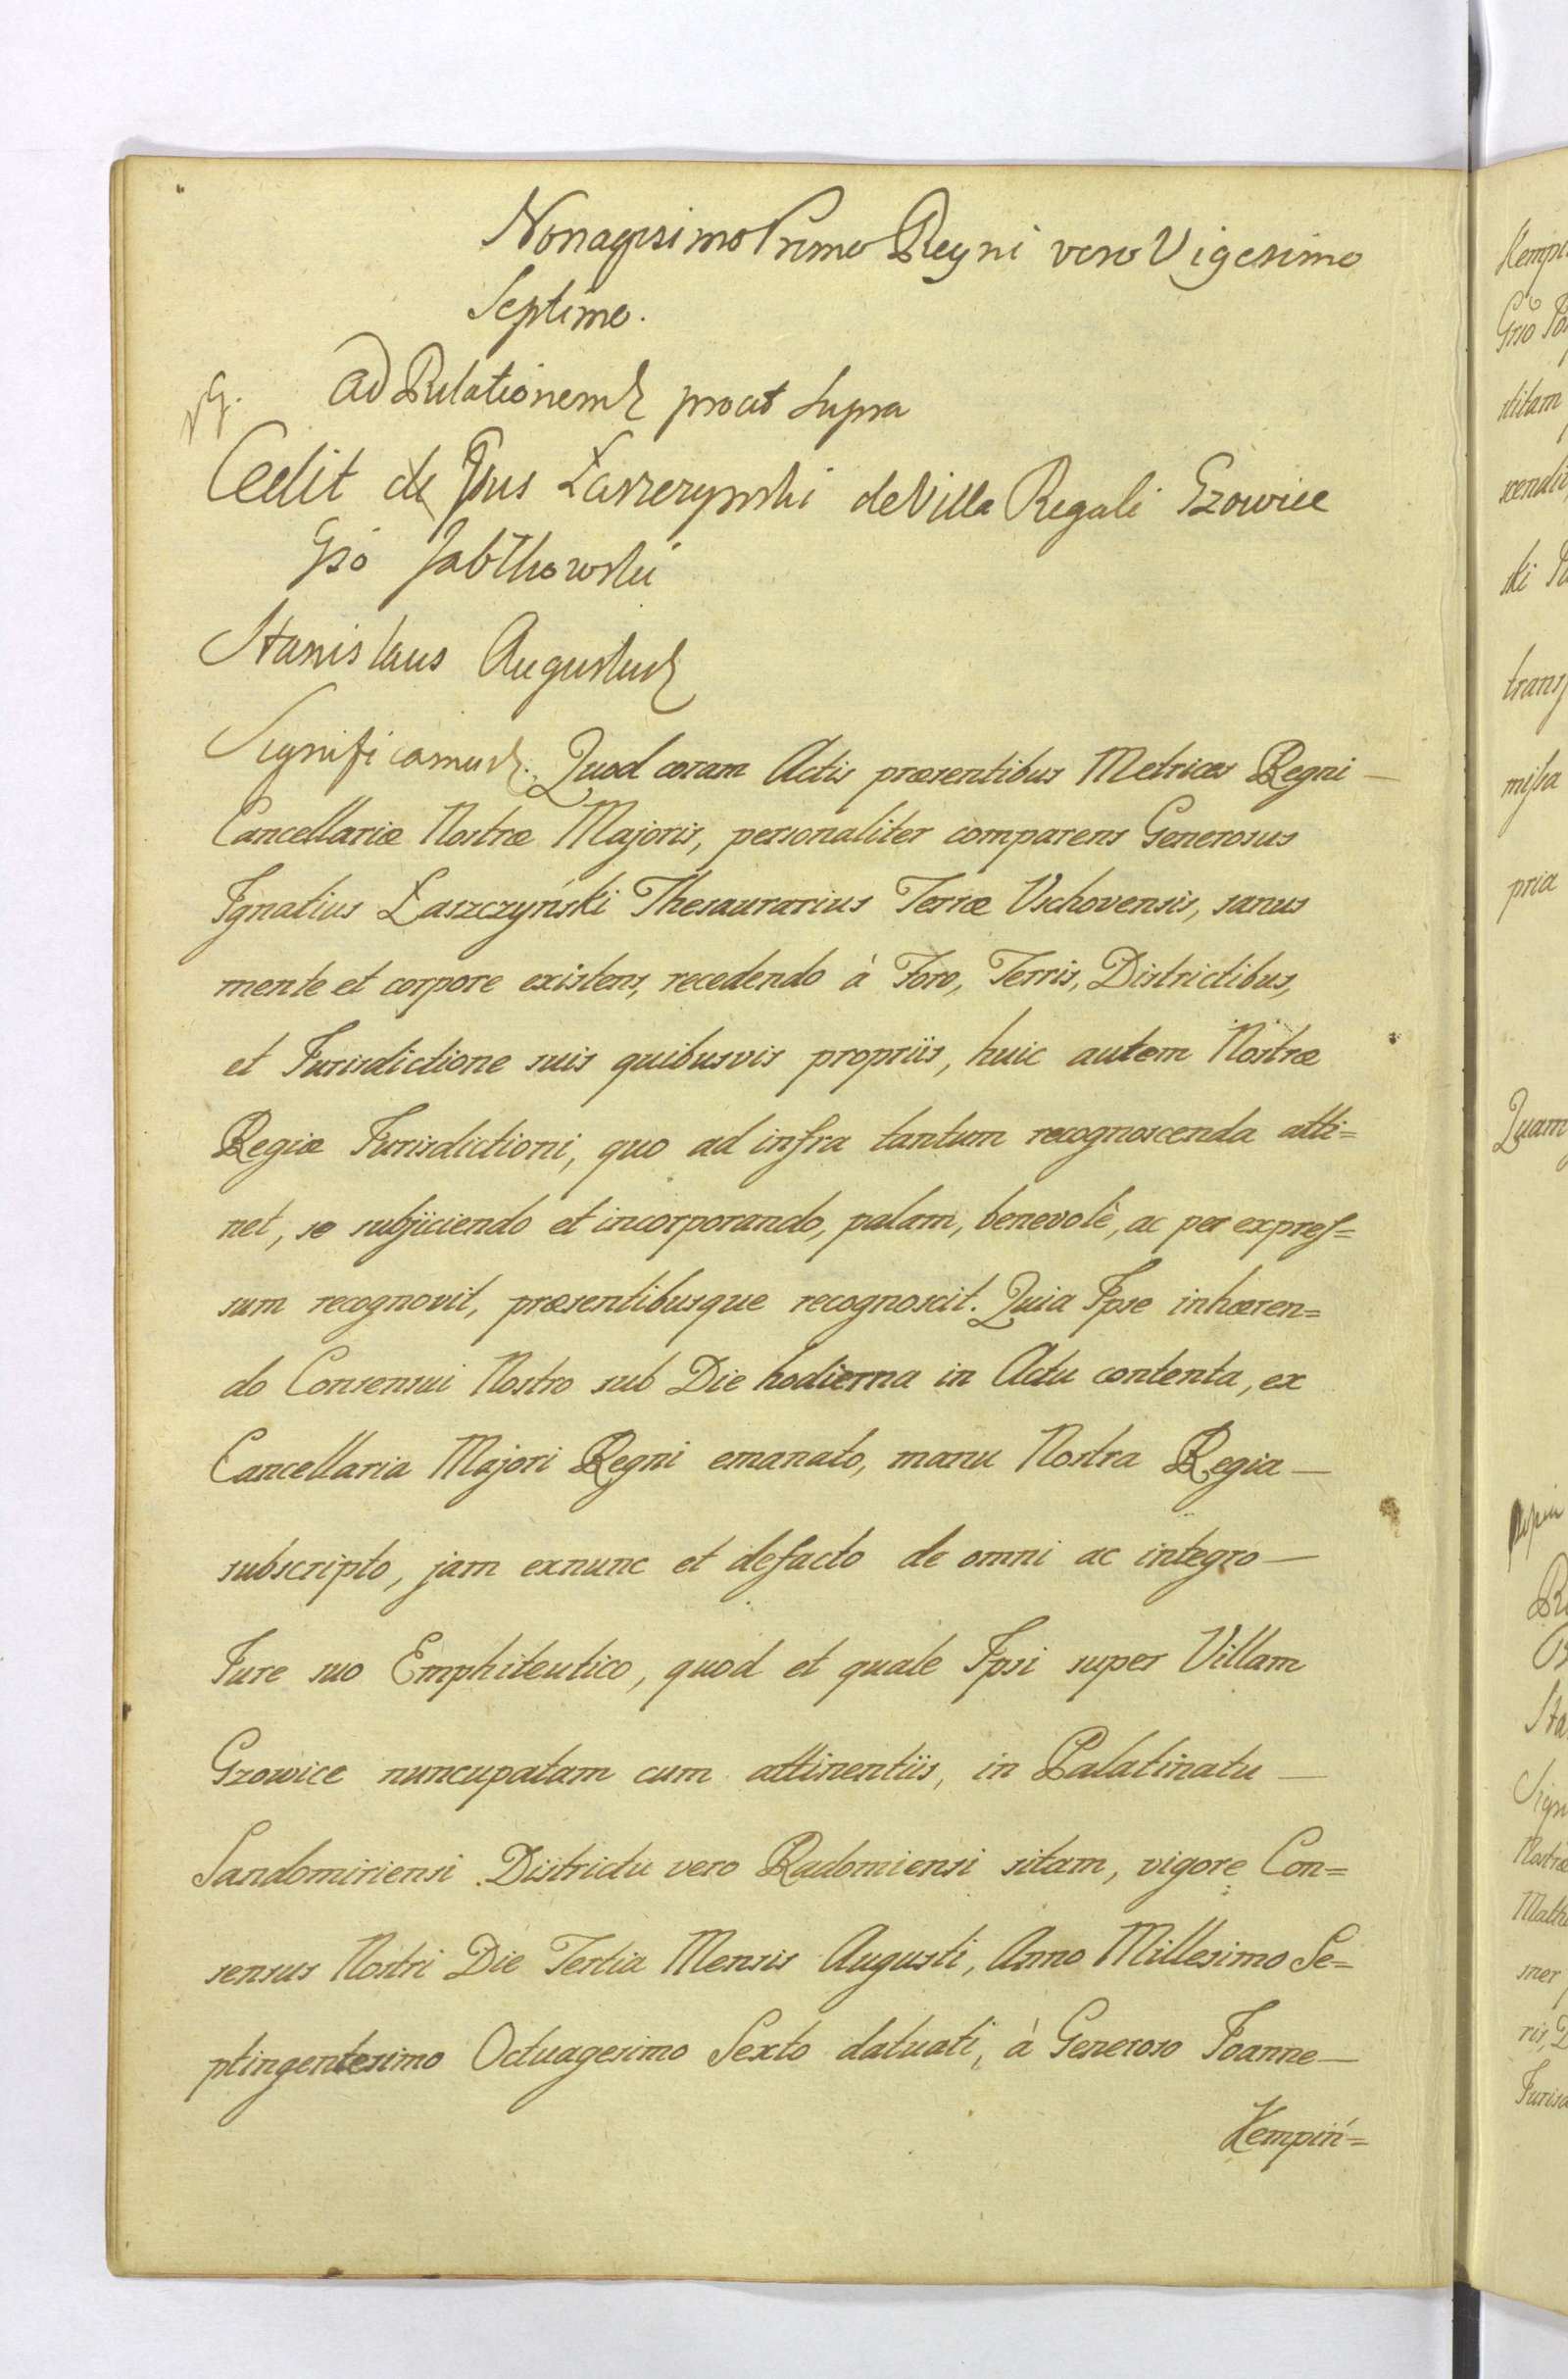 Nonagesimo Primo Regni vero Vigesimo
Septimo.
Ad Relationem prout supra
Cedit de Gnus Łaszczynski de Villa Regali Gzowice
Gso Jabłkowski
Stanislaus Augustus
Significamus. Quod coram Actis præsentibus Metrices Regni —
Cancellariæ Nostræ Majoris, personaliter comparens Generosus
Ignatius Łaszczyński Thesaurarius Terræ Vschovensis, sanus
mente et corpore existens, recedendo à Foro, Terris, Districtibus,
et Jurisdictione suis quibusvis propriis, huic autem Nostræ
Regiæ Jurisdictioni, quo ad infra tantum recognoscenda atti=
net, se subjiciendo et incorporando, palam, benevolè, ac per expres=
sum recognovit, præsentibusque recognoscit. Quia Ipse inhæren=
do Consensui Nostro sub Die hodierna in Actu contenta, ex
Cancellaria Majori Regni emanato, manu Nostra Regia —
subscripto, jam exnunc et defacto de omni ac integro —
Jure suo Emphiteutico, quod et quale Ipsi super Villam
Gzowice nuncupatam cum attinentiis, in Palatinatu —
Sandomiriensi Districtu vero Radomiensi sitam, vigore Con=
sensus Nostri Die Tertia Mensis Augusti, Anno Millesimo Se=
ptingentesimo Octuagesimo Sexto datuati, à Generoso Joanne —
Kempiń=
Kempi
Gno
stitam
scendit
ski
trans
missa
pria
Quam
Sta
Sign
Nostræ
Math
ris,
Juris